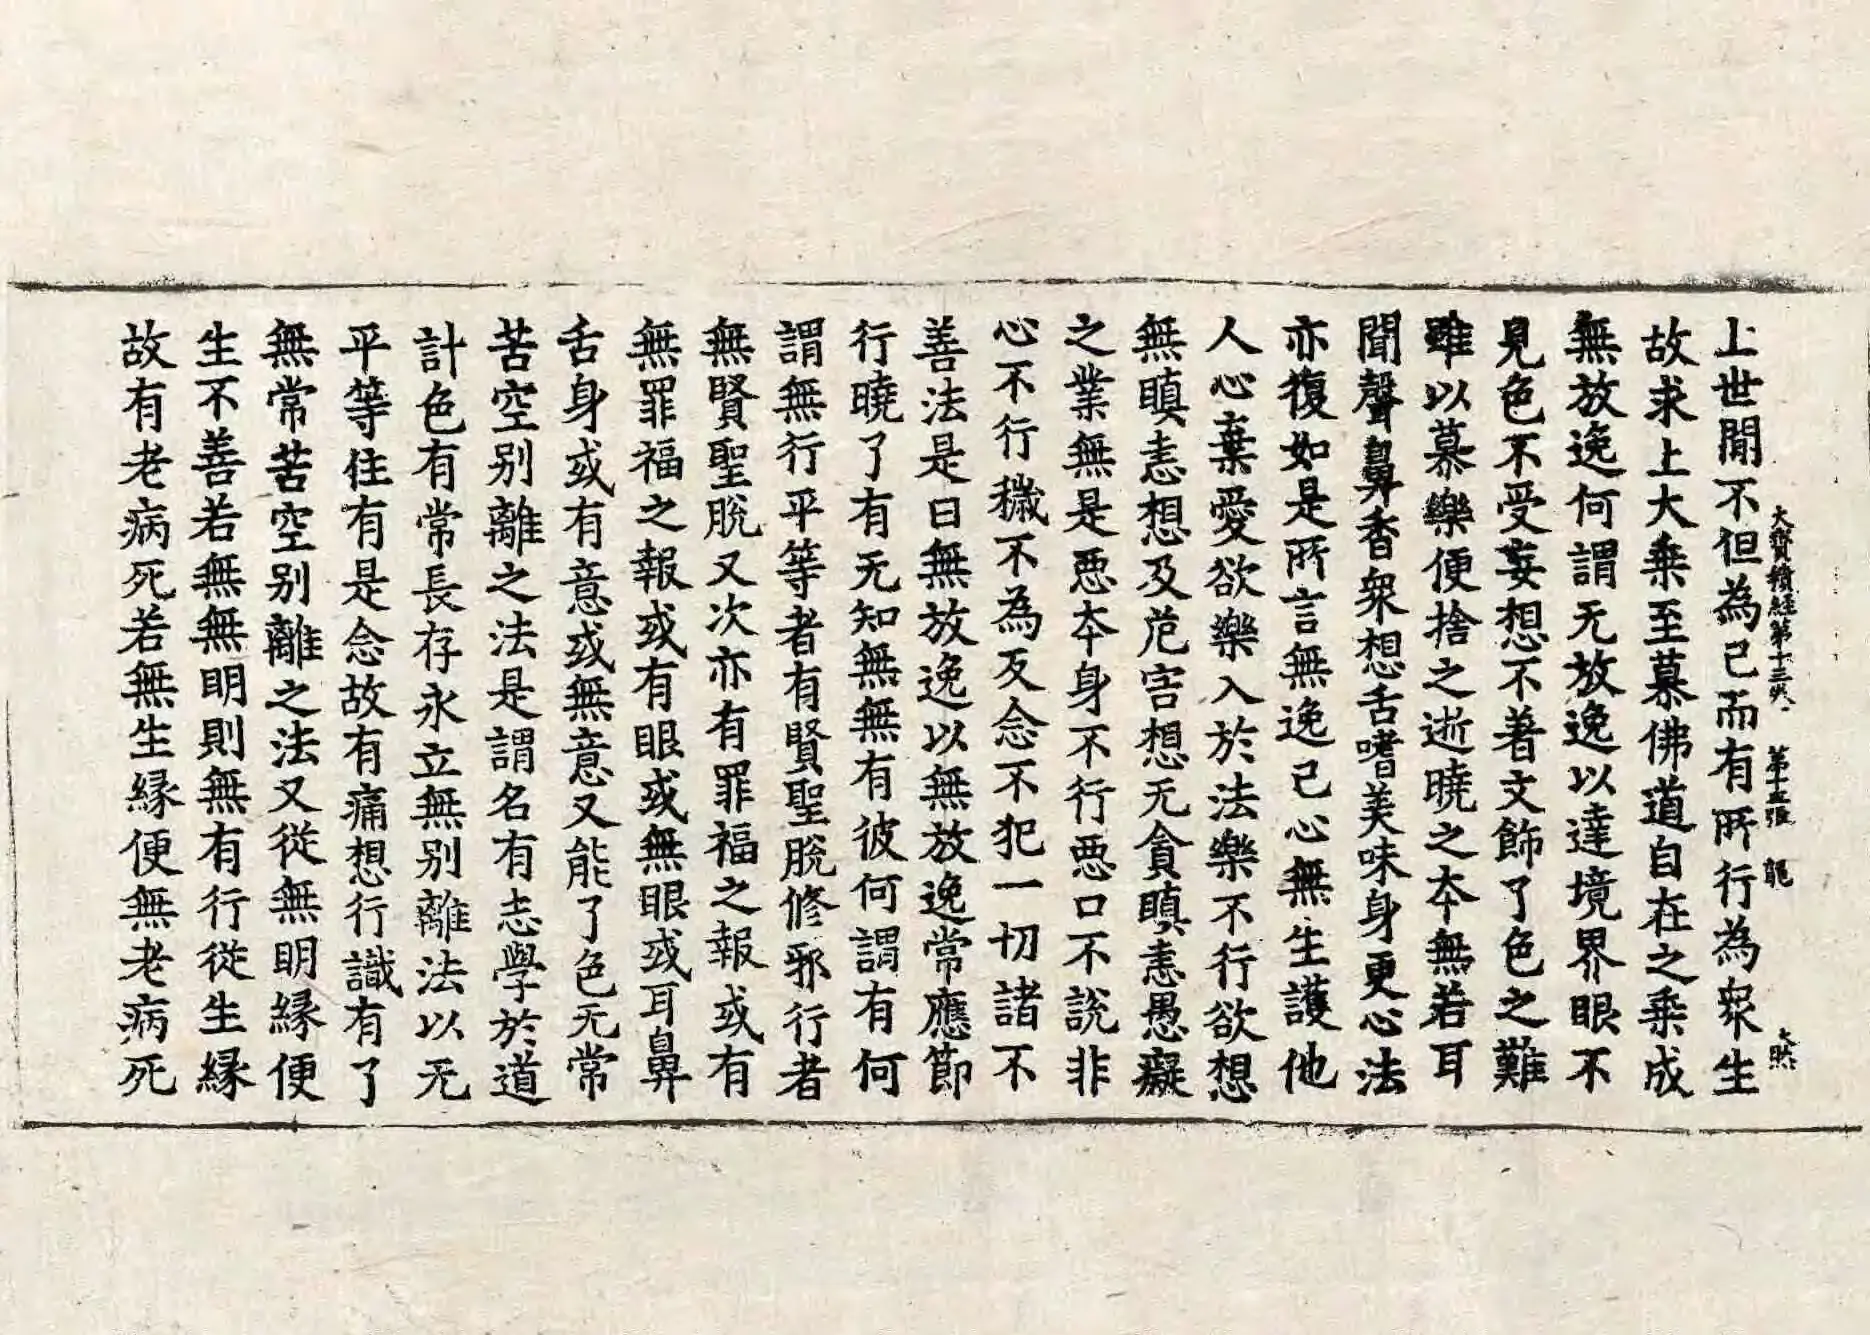 大寶積經第十三 第十五張 龍
上世間不但為己而有所行為衆生
故求上大乗至慕佛道自在之乗成
無放逸何謂无放逸以達境界眼不
見色不受妄想不著文飾了色之難
雖以慕樂便捨之逝曉之本無若耳
聞聲鼻香衆想舌嗜美味身更心法
亦復如是所言無逸己心無生護他
人心棄愛欲樂入於法樂不行欲想
無瞋恚想及危害想无貪瞋恚愚癡
之業無是惡本身不行惡口不說非
心不行穢不為反念不犯一切諸不
善法是曰無放逸以無放逸常應節
行曉了有无知無無有彼何謂有何
謂無行平等者有賢聖脫修邪行者
無賢聖脫又次亦有罪福之報或有
無罪福之報或有眼或無眼或耳鼻
舌身或有意或無意又能了色无常
苦空別離之法是謂名有志學於道
計色有常長存永立無別離法以无
平等住有是念故有痛想行識有了
無常苦空別離之法又從無明緣便
生不善若無無明則無有行從生緣
故有老病死若無生緣便無老病死